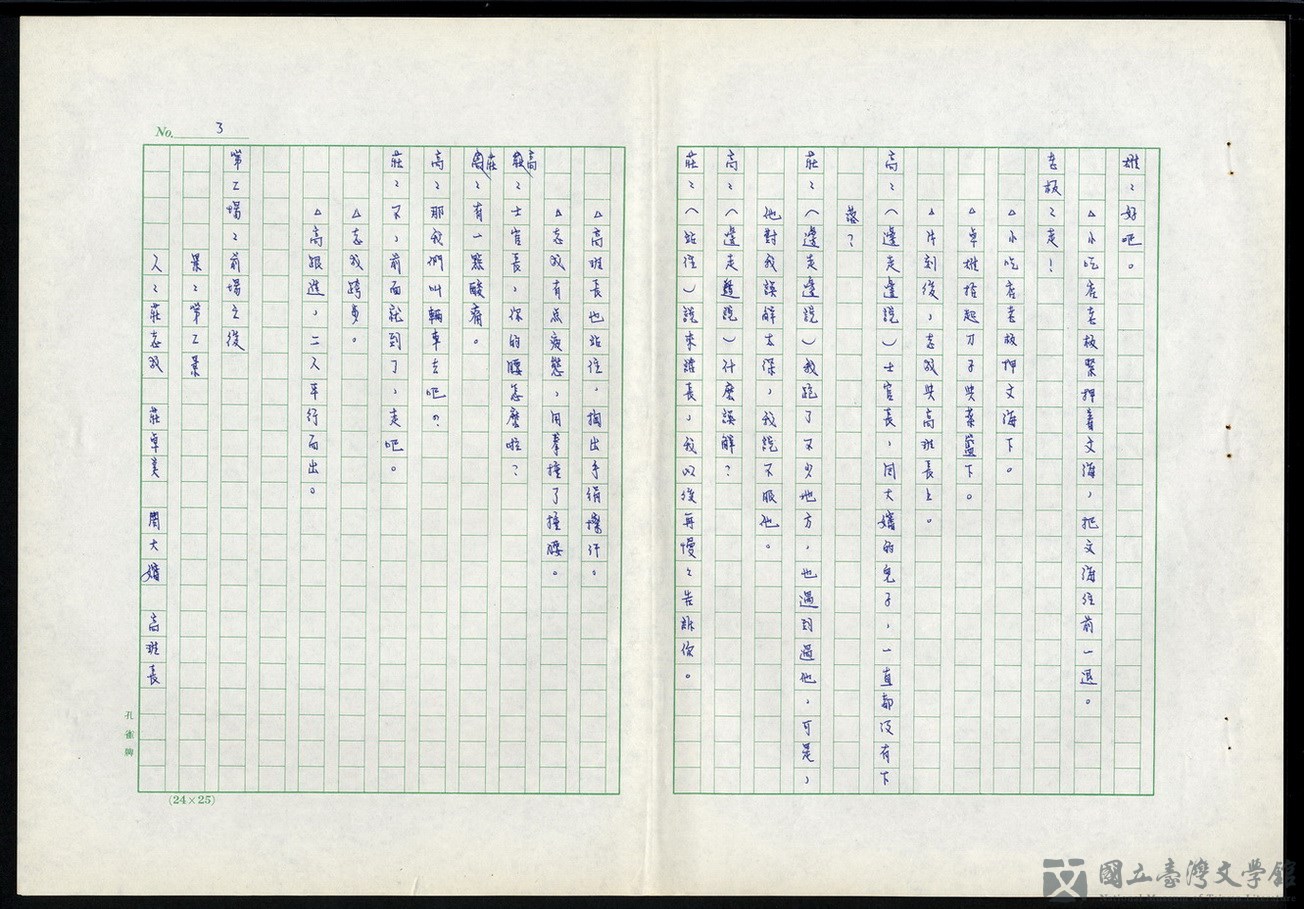 雄：好吧。
△小吃店老板緊押着文海，把文海往前一退。
老板：走！
△小吃店老板押文海下。
△卓雄拾起刀子與菜籃下。
△片刻後，志毅與高班長上。
高：（邊走邊說）士官長，周大嬸的兒子，一直都没有下
落？
莊：（邊走邊說）我跑了不少地方，也遇到過他，可是，
他對我誤解太深，我説不服他。
高：（邊走邊說）什麼誤解？
莊：（站住）說來話長，我以後再慢々告訴你。
△高班長也站住，掏出手絹擦汗。
△志毅有点疲憊，用拳捶了捶腰。
高：士官長，你的腰怎麼啦？
莊：有一點酸痛。
高：那我們叫輛車去吧？
莊：不，前面就到了，走吧。
△志毅跨步。
△高跟進，二人平行而出。
No. 3
第二場：前場之後
景：第二景
人：莊志毅 莊卓美 周大嬸 高班長
孔雀牌
(24×25)
國立臺灣文學館
National Museum of Taiwan Literature